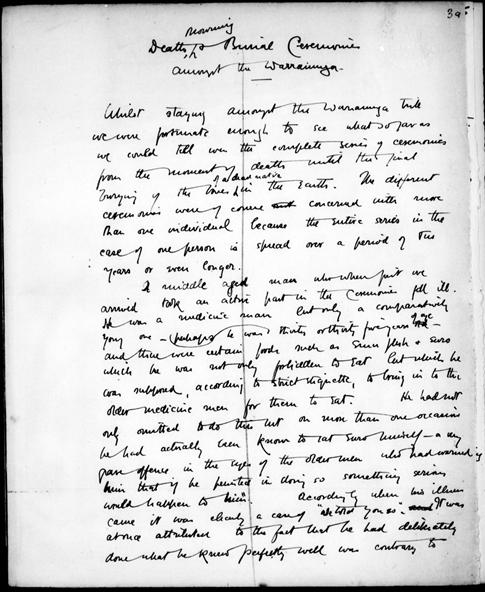 3a
mourning
Deaths, & Burial Ceremonies
amongst the Warramunga.
Whilst staying amongst the Warramunga tribe
we were fortunate enough to see what so far as
we could tell was the complete series of ceremonies
from the moment of death until the final
of a dead native
burying of the bones in the Earth. The different
ceremonies were of course concerned with more
than one individual because the entire series in the
case of one person is spread over a period of
years or even longer.
A middle aged man who when first we
arrived took an active part in the Ceremonies fell ill.
He was a medicine man but only a comparatively
young one – (perhaps he was) thirty or thirty five years of age –
and there were certain foods such as Emu flesh & Euro
which he was not only forbidden to Eat but which he
was supposed, according to strict etiquette, to bring in to the
older medicine men for them to Eat. He had not
only omitted to do this but on more than one occasion
he had actually been known to eat Euro himself – a very
grave offence in the eyes of the older men who had warned
him that if he persisted in doing so something serious
would happen to him. Accordingly when his illness
came it was clearly a case of "we told you so". It was
at once attributed to the fact that he had deliberately
done what he knew perfectly well was contrary to